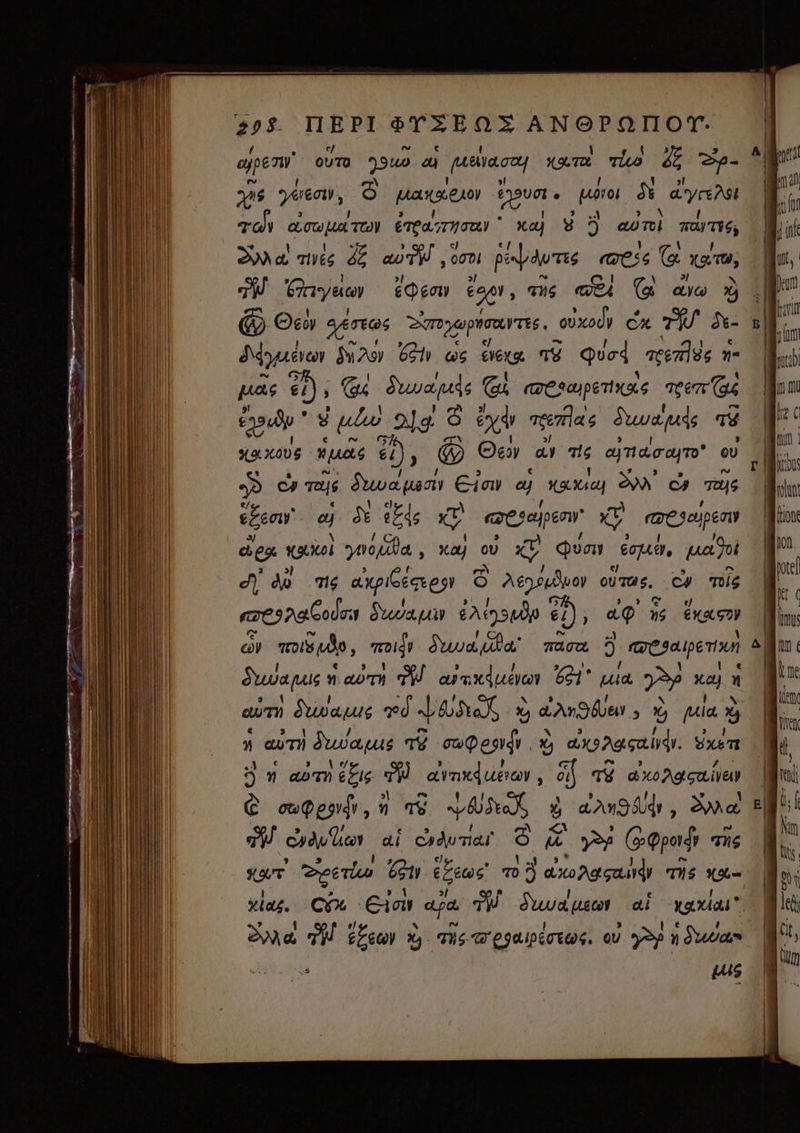 298 ΠΕΡΙ ΦΥΣΕΩΣ ΑΝΘΡΩΠΟΥ.
αἵρεσιν· οὕτω γὰρ αἱ μείνασαι κατὰ τὴν ἐξ ἀρ-
χῆς γένεσιν, τὸ μακάριον ἔχουσι. μόνοι δὲ ἄγγελοι
τῶν ἀσωμάτων ἐτράπησαν· καὶ οὐδὲ αὐτοὶ πάντες,
ἀλλά τινὲς ἐξ αὐτῶν, ὅσοι ῥέψαντες πρὸς τὰ κάτω,
τῶν ἐπιγείων ἔφεσιν ἔσχον, τῆς πρὸς τὰ ἄνω καὶ
τὸν Θεὸν σχέσεως ἀποχωρήσαντες. οὐκοῦν ἐκ τῶν δε-
δειγμένων δῆλόν ἐστιν ὡς ἕνεκα τοῦ φύσει τρεπτοὺς ἡ-
μᾶς εἶναι, τὰς δυνάμεις τὰς προαιρετικὰς τρεπτὰς
ἔχομεν· οὐ μὴν διὰ τὸ ἔχειν τρεπτὰς δυνάμεις τοῦ
κακοὺς ἡμᾶς εἶναι, τὸν Θεὸν ἄν τις αἰτιάσαιτο· οὐ
γὰρ ἐν ταῖς δυνάμεσίν εἰσιν αἱ κακίαι ἀλλ' ἐν ταῖς
ἕξεσιν· αἱ δὲ ἕξεις κατὰ προαίρεσιν· κατὰ προαίρεσιν
ἄρα κακοὶ γινόμεθα, καὶ οὐ κατὰ φύσιν ἐσμέν. μάθοι
δ' ἄν τις ἀκριβέστερον τὸ λεγόμενον οὕτως. ἐν τοῖς
προσλαβοῦσιν δύναμιν ἐλέγομεν εἶναι, ἀφ' ἧς ἕκαστον
ὧν ποιοῦμεν, ποιεῖν δυνάμεθα· πᾶσα δὲ προαιρετικὴ
δύναμις ἡ αὐτὴ τῶν ἀντικειμένων ἐστί· μία γὰρ καὶ ἡ
αὐτὴ δύναμις τοῦ ψεύδεσθαι καὶ ἀληθεύειν, καὶ μία καὶ
ἡ αὐτὴ δύναμις τοῦ σωφρονεῖν καὶ ἀκολασταίνειν. οὐκέτι
δὲ ἡ αὐτὴ ἕξις τῶν ἀντικειμένων, οἷον τοῦ ἀκολασταίνειν
καὶ σωφρονεῖν, ἢ τοῦ ψεύδεσθαι καὶ ἀληθεύειν, ἀλλὰ
τῶν ἐναντίων αἱ ἐναντίαι· τὸ μὲν γὰρ σωφρονεῖν τῆς
κατ' ἀρετήν ἐστιν ἕξεως· τὸ δὲ ἀκολασταίνειν τῆς κα-
κίας. οὐκ εἰσὶν ἄρα τῶν δυνάμεων αἱ κακίαι·
ἀλλὰ τῶν ἕξεων καὶ τῆς προαιρέσεως. οὐ γὰρ ἡ δύνα-
μις